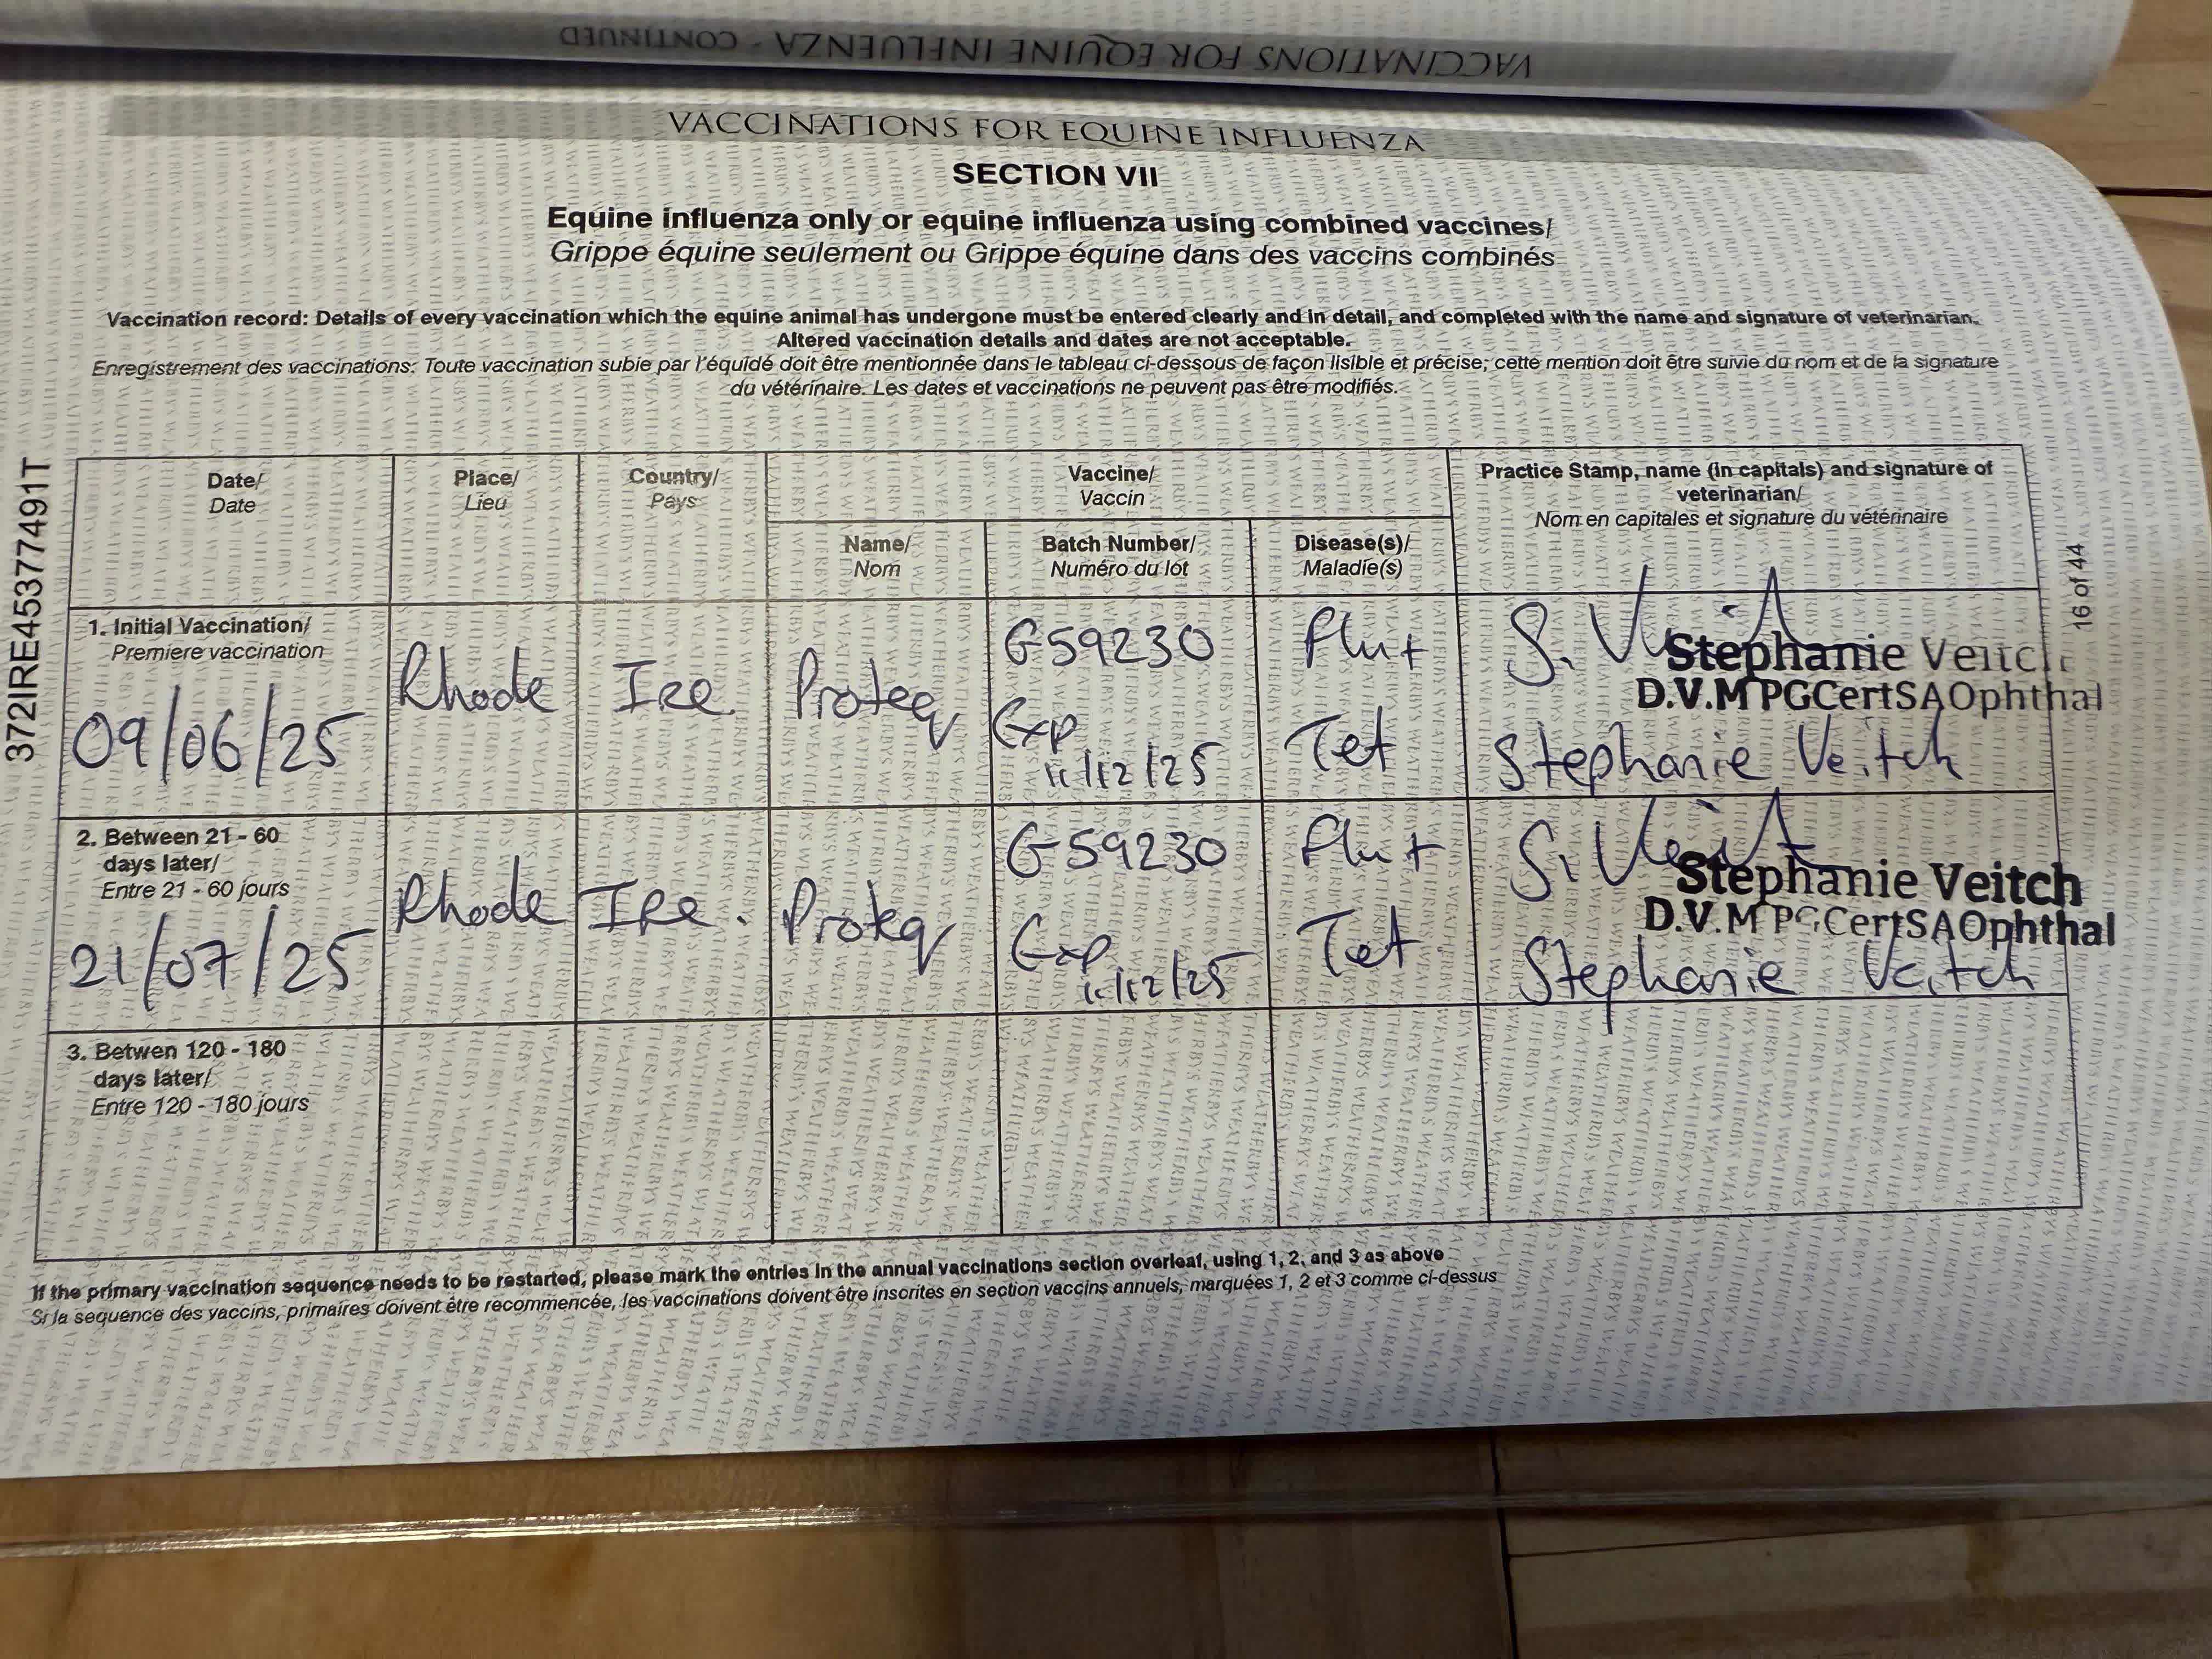 VACCINATIONS FOR EQUINE INFLUENZA - CONTINUED
VACCINATIONS FOR EQUINE INFLUENZA
SECTION VII
Equine influenza only or equine influenza using combined vaccines/
Grippe équine seulement ou Grippe équine dans des vaccins combinés
Vaccination record: Details of every vaccination which the equine animal has undergone must be entered clearly and in detail, and completed with the name and signature of veterinarian.
Altered vaccination details and dates are not acceptable.
Enregistrement des vaccinations: Toute vaccination subie par l'équidé doit être mentionnée dans le tableau ci-dessous de façon lisible et précise; cette mention doit être suivie du nom et de la signature
du vétérinaire. Les dates et vaccinations ne peuvent pas être modifiés.
372IRE45377491T
16 of 44
Date/
Date
Place/
Lieu
Country/
Pays
Vaccine/
Vaccin
Name/
Nom
Batch Number/
Numéro du lot
Disease(s)/
Maladie(s)
Practice Stamp, name (in capitals) and signature of
veterinarian/
Nom en capitales et signature du vétérinaire
1. Initial Vaccination/
Premiere vaccination
09/06/25
Rhode
Ire
Proteq
G59230
Exp
11/12/25
Flu +
Tet
S. Veitch
Stephanie Veitch
D.V.M PGCertSAOphthal
Stephanie Veitch
2. Between 21 - 60
days later/
Entre 21 - 60 jours
21/07/25
Rhode
Ire.
Proteq
G59230
Exp
11/12/25
Flu +
Tet
S. Veitch
Stephanie Veitch
D.V.M PGCertSAOphthal
Stephanie Veitch
3. Betwen 120 - 180
days later/
Entre 120 - 180 jours
If the primary vaccination sequence needs to be restarted, please mark the entries in the annual vaccinations section overleaf, using 1, 2, and 3 as above
Si la sequence des vaccins, primaires doivent être recommencée, les vaccinations doivent être inscrites en section vaccins annuels, marquées 1, 2 et 3 comme ci-dessus